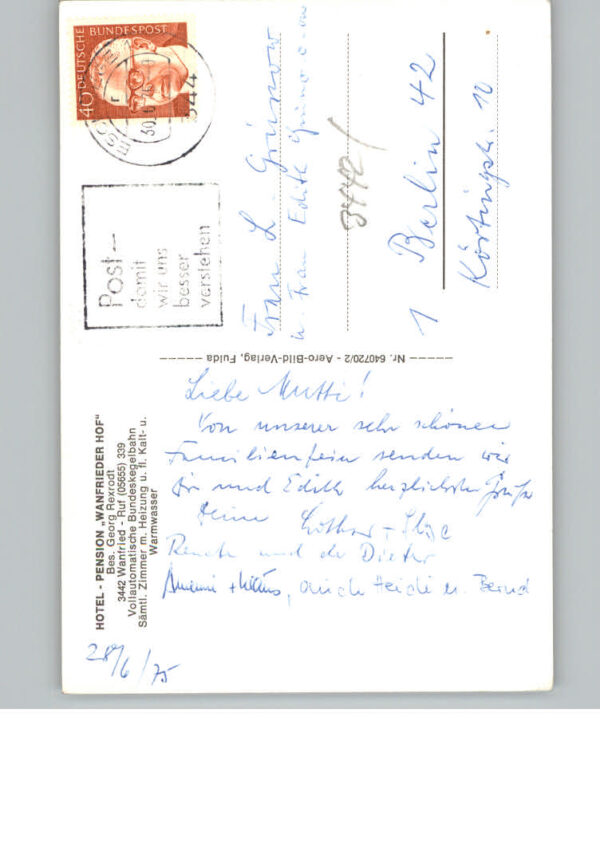 HOTEL - PENSION „WANFRIEDER HOF"
Bes. Georg Rexrodt
3442 Wanfried - Ruf (05655) 339
Vollautomatische Bundeskegelbahn
Sämtl. Zimmer m. Heizung u. fl. Kalt- u.
Warmwasser
28/6/75
Liebe Mutti!
Von unserer sehr schönen
Familienfeier senden wir
Dir und Edith herzlichste Grüße
Deine Lothar + Ilse
Renate und der Dieter
auch Heidi u. Bernd
Nr. 640720/2 - Aero-Bild-Verlag, Fulda
DEUTSCHE BUNDESPOST
40
344
Post –
damit
wir uns
besser
verstehen
Frau L. Grunow
u. Frau Edith Grunow
3442/
1 Berlin 42
Körtingstr. 10